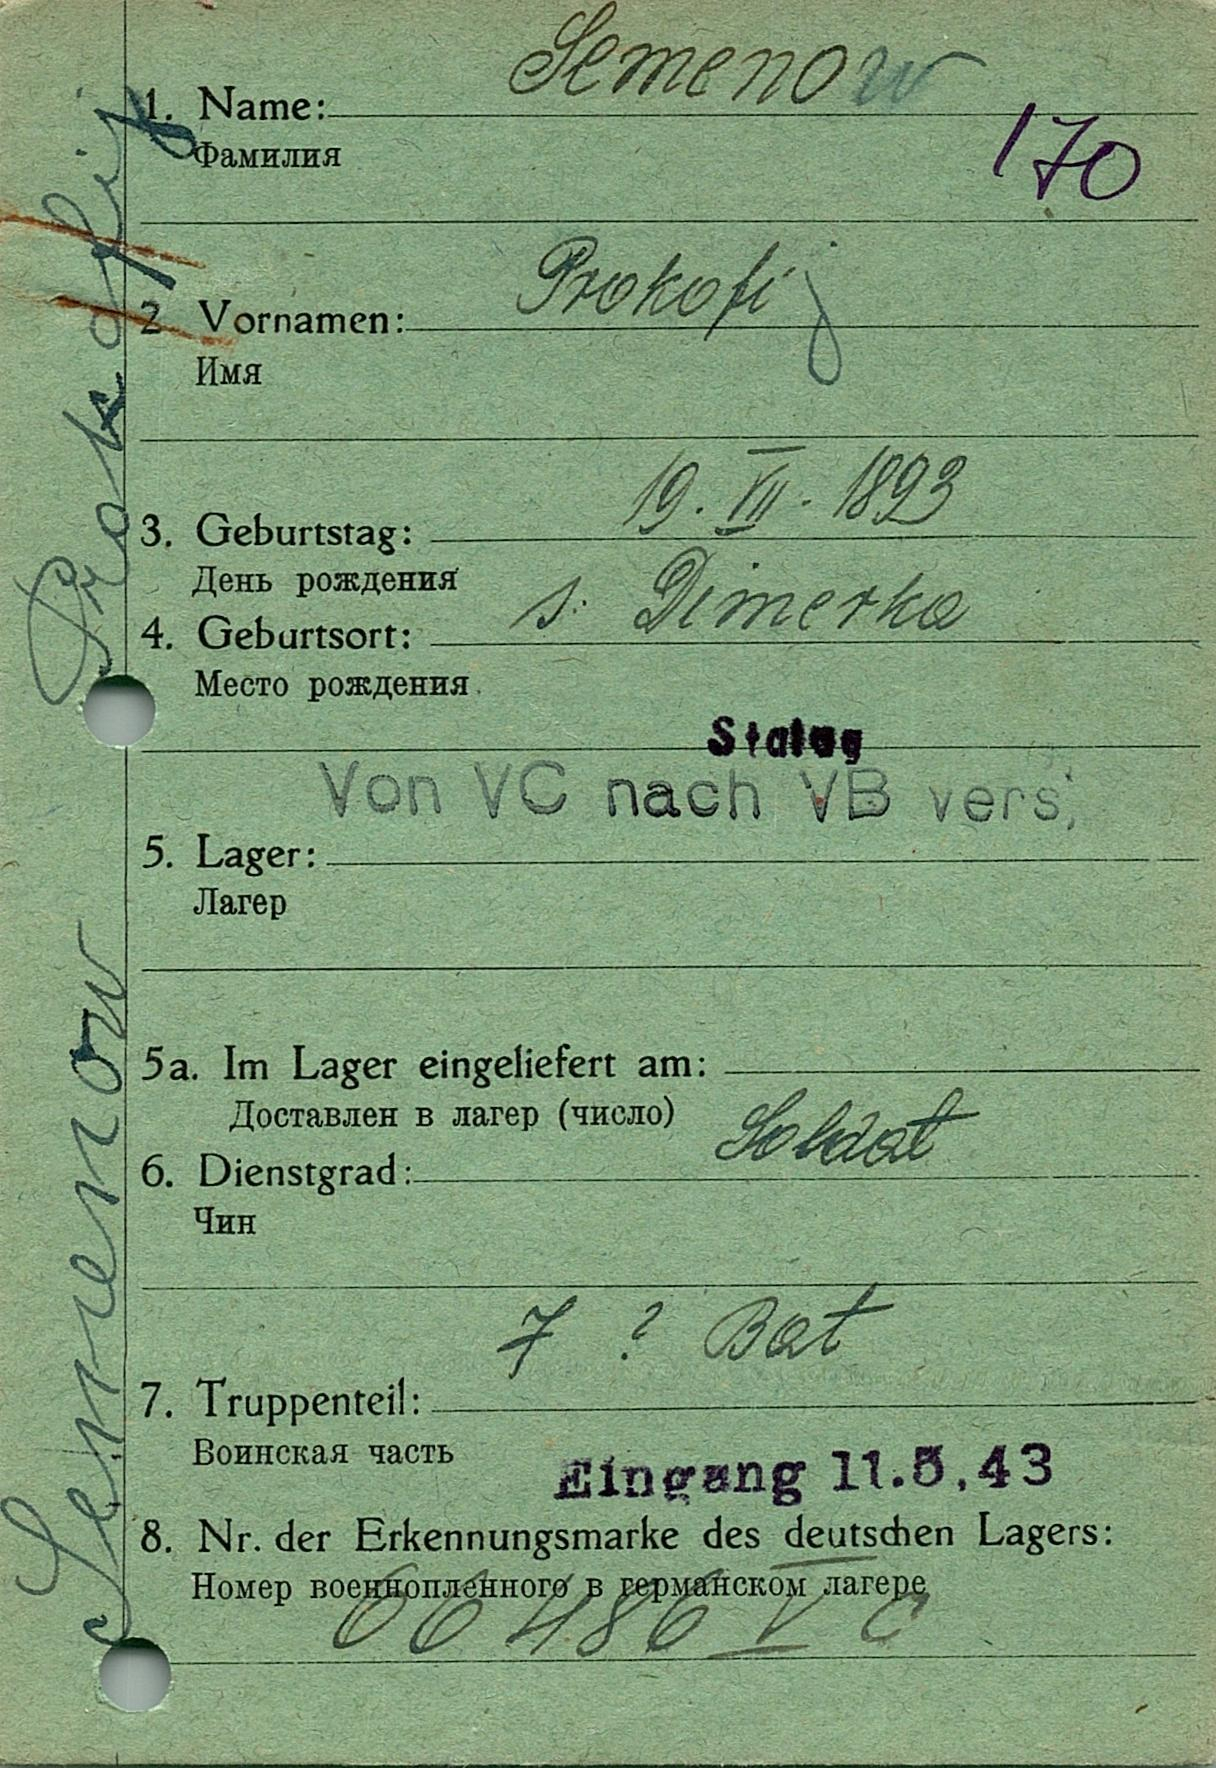 Semenow
1. Name:
Фамилия
170
Prokofij
2 Vornamen:
Имя
19. VII. 1893
3. Geburtstag:
День рождения
s. Dimerka
4. Geburtsort:
Место рождения
Stalag
Von VC nach VB vers.
5. Lager:
Лагер
5a. Im Lager eingeliefert am:
Доставлен в лагер (число)
Soldat
6. Dienstgrad:
Чин
7 ? Bat
7. Truppenteil:
Воинская часть
Eingang 11.5.43
8. Nr. der Erkennungsmarke des deutschen Lagers:
Номер военнопленного в германском лагере
66486 V C
Semenow Prokofij